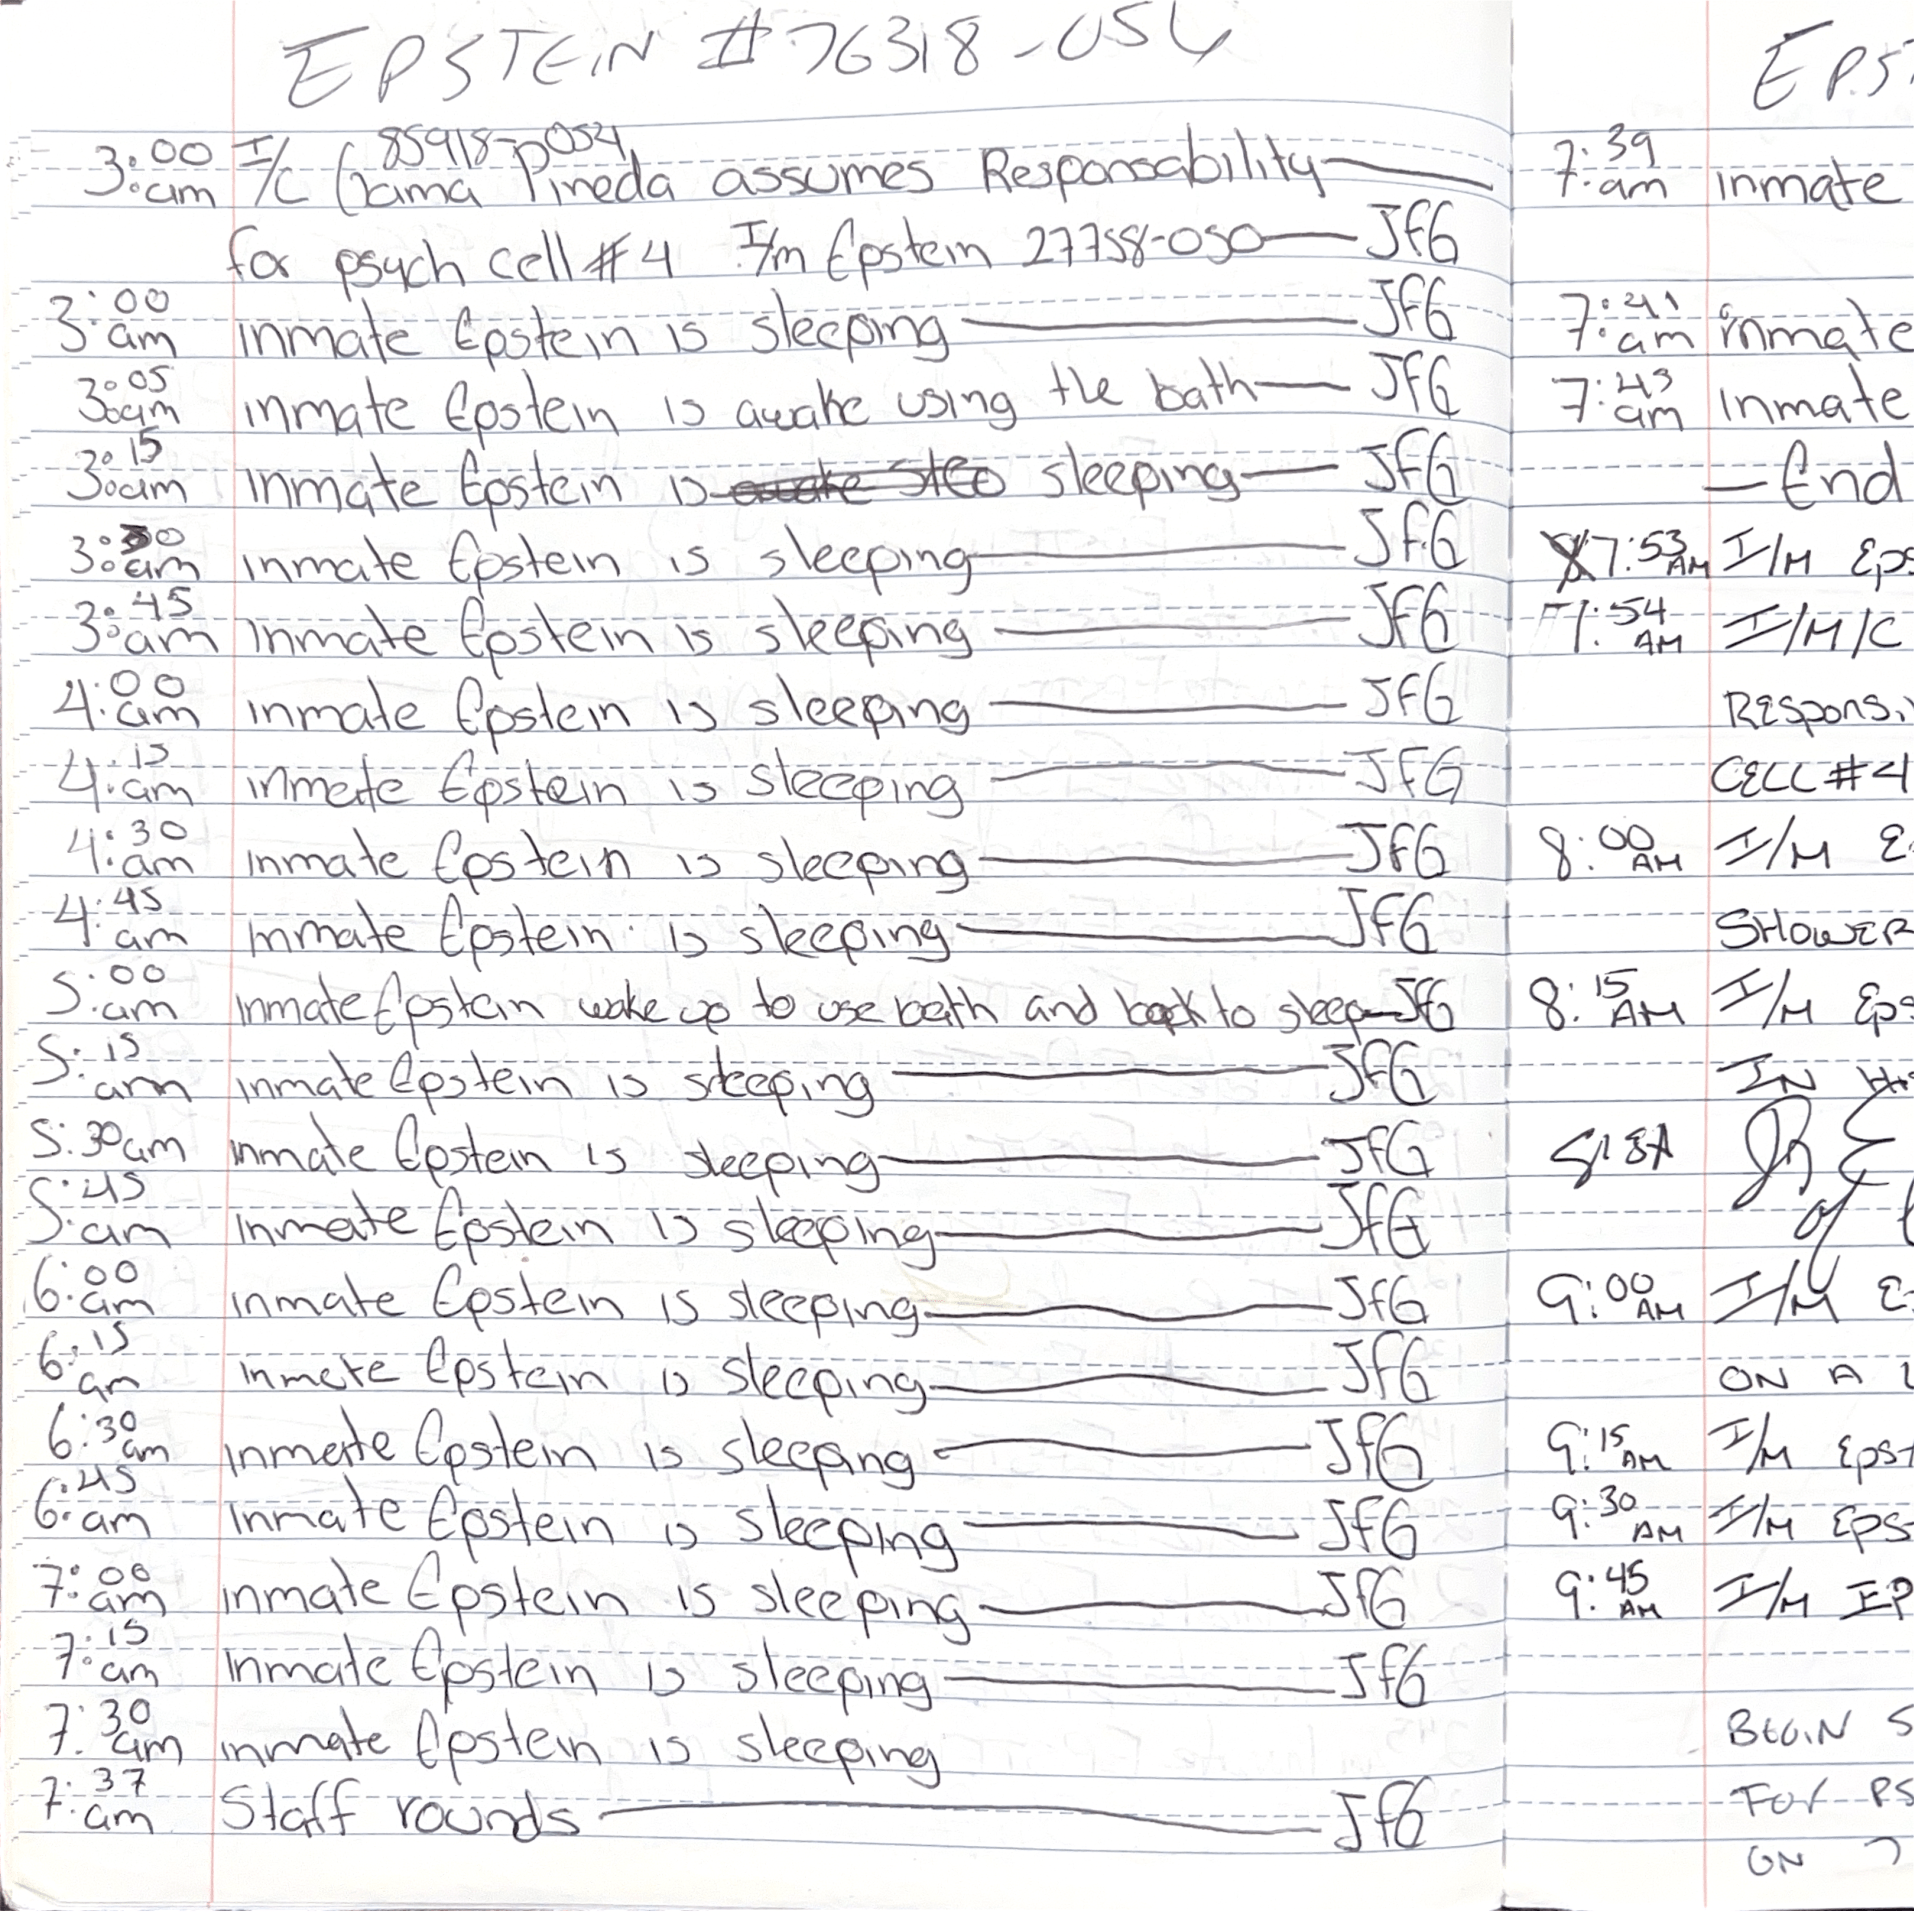 EPSTEIN #76318-054
85918-054
3:00 am I/C Gama Pineda assumes Responsability
for psych cell #4 I/m Epstein 27758-050 JFG
3:00 am inmate Epstein is sleeping JFG
3:05 am inmate Epstein is awake using the bath JFG
3:15 am inmate Epstein is sleeping JFG
3:30 am inmate Epstein is sleeping JFG
3:45 am inmate Epstein is sleeping JFG
4:00 am inmate Epstein is sleeping JFG
4:15 am inmate Epstein is sleeping JFG
4:30 am inmate Epstein is sleeping JFG
4:45 am inmate Epstein is sleeping JFG
5:00 am inmate Epstein wake up to use bath and back to sleep JFG
5:15 am inmate Epstein is sleeping JFG
5:30 am inmate Epstein is sleeping JFG
5:45 am inmate Epstein is sleeping JFG
6:00 am inmate Epstein is sleeping JFG
6:15 am inmate Epstein is sleeping JFG
6:30 am inmate Epstein is sleeping JFG
6:45 am inmate Epstein is sleeping JFG
7:00 am inmate Epstein is sleeping JFG
7:15 am inmate Epstein is sleeping JFG
7:30 am inmate Epstein is sleeping
7:37 am Staff rounds JFG
EPS
7:39 am inmate
7:41 am inmate
7:43 am inmate
End
7:53 AM I/M Eps
7:54 AM I/M/C
Responsi
CELL #4
8:00 AM I/M E
SHOWER
8:15 AM I/M Eps
IN
of
9:00 AM I/M E
ON A
9:15 AM I/M Epst
9:30 AM I/M Eps
9:45 AM I/M EP
BEGIN S
FOR PS
ON